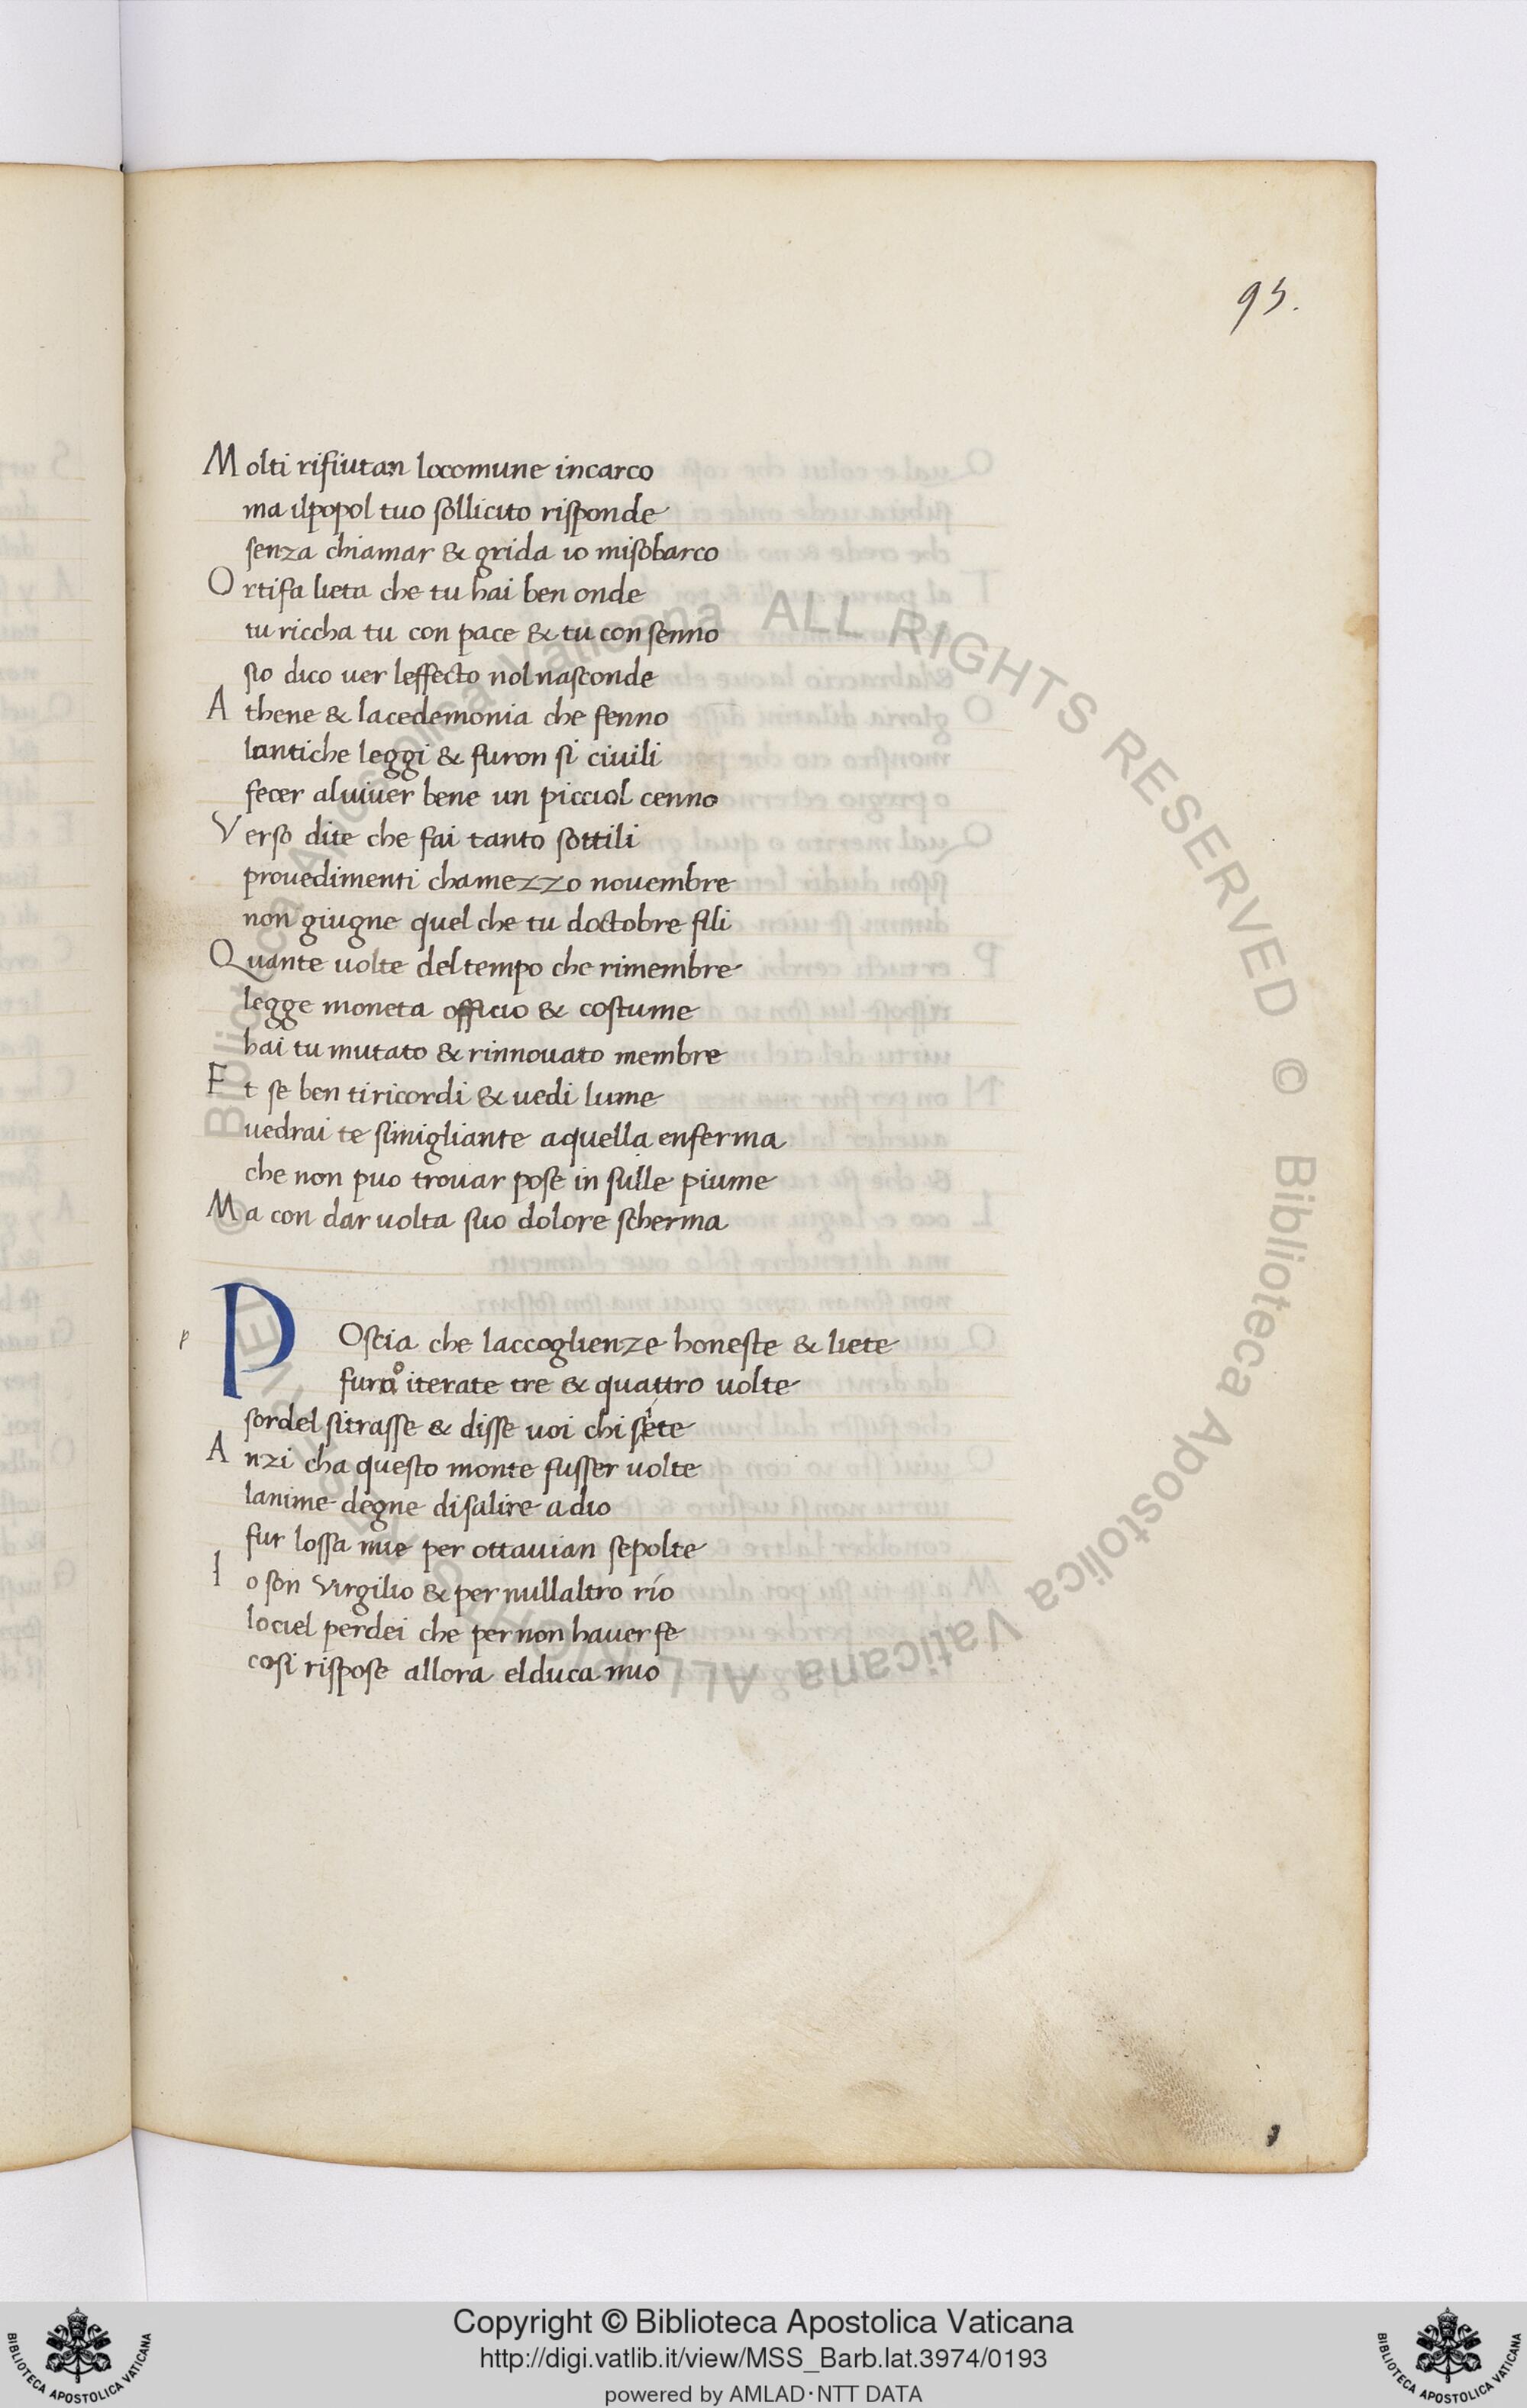 95.
Molti rifiutan locomune incarco
ma ilpopol tuo sollicito risponde
senza chiamar & grida io misobarco
Ortifa lieta che tu hai ben onde
tu riccha tu con pace & tu con senno
sio dico uer leffecto nol nasconde
Athene & lacedemonia che fenno
lantiche leggi & furon si ciuili
fecer aluiuer bene un picciol cenno
Verso dite che fai tanto sottili
prouedimenti chamezzo nouembre
non giugne quel che tu doctobre fili
Quante uolte deltempo che rimembre
legge moneta officio & costume
hai tu mutato & rinnouato membre
Et se ben tiricordi & uedi lume
uedrai te simigliante aquella enferma
che non puo trouar pose in sulle piume
Ma con dar uolta suo dolore scherma
p
POscia che laccoglienze honeste & liete
furo iterate tre & quattro uolte
sordel sitrasse & disse uoi chi siete
Anzi cha questo monte fusser uolte
lanime degne disalire adio
fur lossa mie per ottauian sepolte
Io son Virgilio & per nullaltro rio
lociel perdei che per non hauer fe
cosi rispose allora elduca mio
© Biblioteca Apostolica Vaticana ALL RIGHTS RESERVED © Biblioteca Apostolica Vaticana ALL RIGHTS RESERVED
Copyright © Biblioteca Apostolica Vaticana
http://digi.vatlib.it/view/MSS_Barb.lat.3974/0193
powered by AMLAD·NTT DATA
BIBLIOTECA APOSTOLICA VATICANA
BIBLIOTECA APOSTOLICA VATICANA